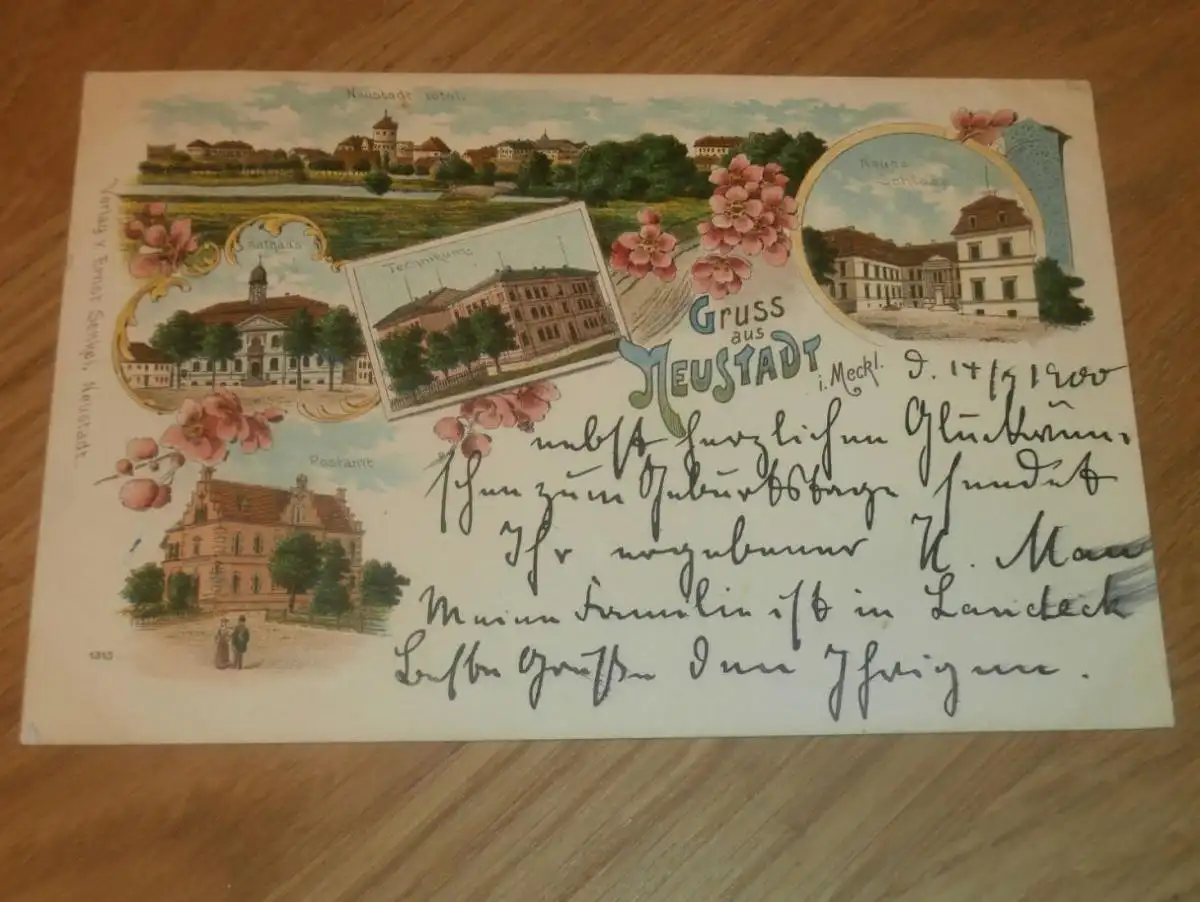 Neustadt total.
Neues
Schloss
Rathaus
Technikum
Postamt
Gruss
aus
Neustadt
i. Meckl.
d. 14/9 1900
nebst herzlichen Glückwün-
schen zum Geburtstage sendet
Ihr ergebener H. Mau
Meine Familie ist in Landeck
Beste Grüße den Ihrigen.
Verlag v. Ernst
Neustadt.
1313